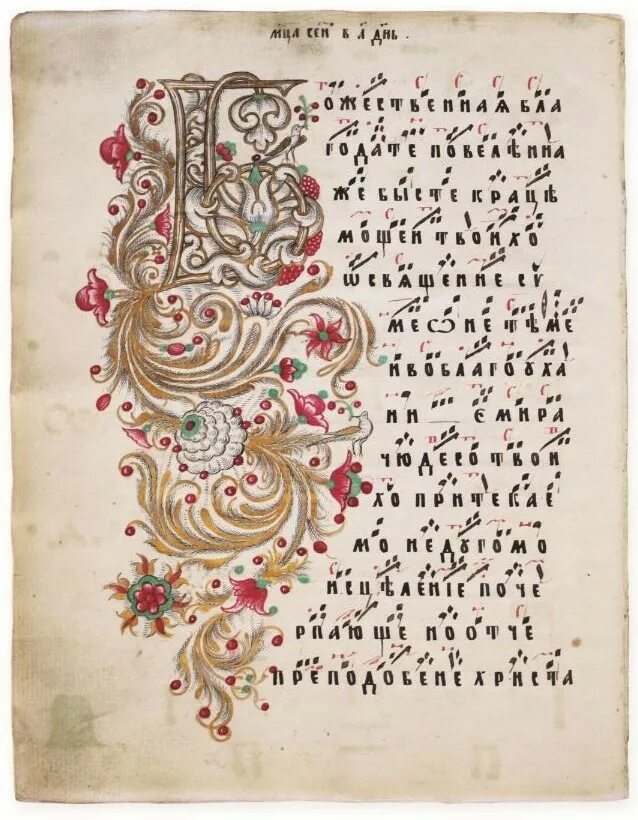 мц҃а сеп҃ в а҃ дн҃ь .
Божественная бла
годате повелѣ ина
же бысте к рацѣ
мощеи твоихо
ѡсвящение су
ме ѡ не тѣ ме
и воблагоуха
ни є мира
чюдесо твои
хо притекае
мо недугомо
исцѣление поче
рпающе но отче
преподобене христа